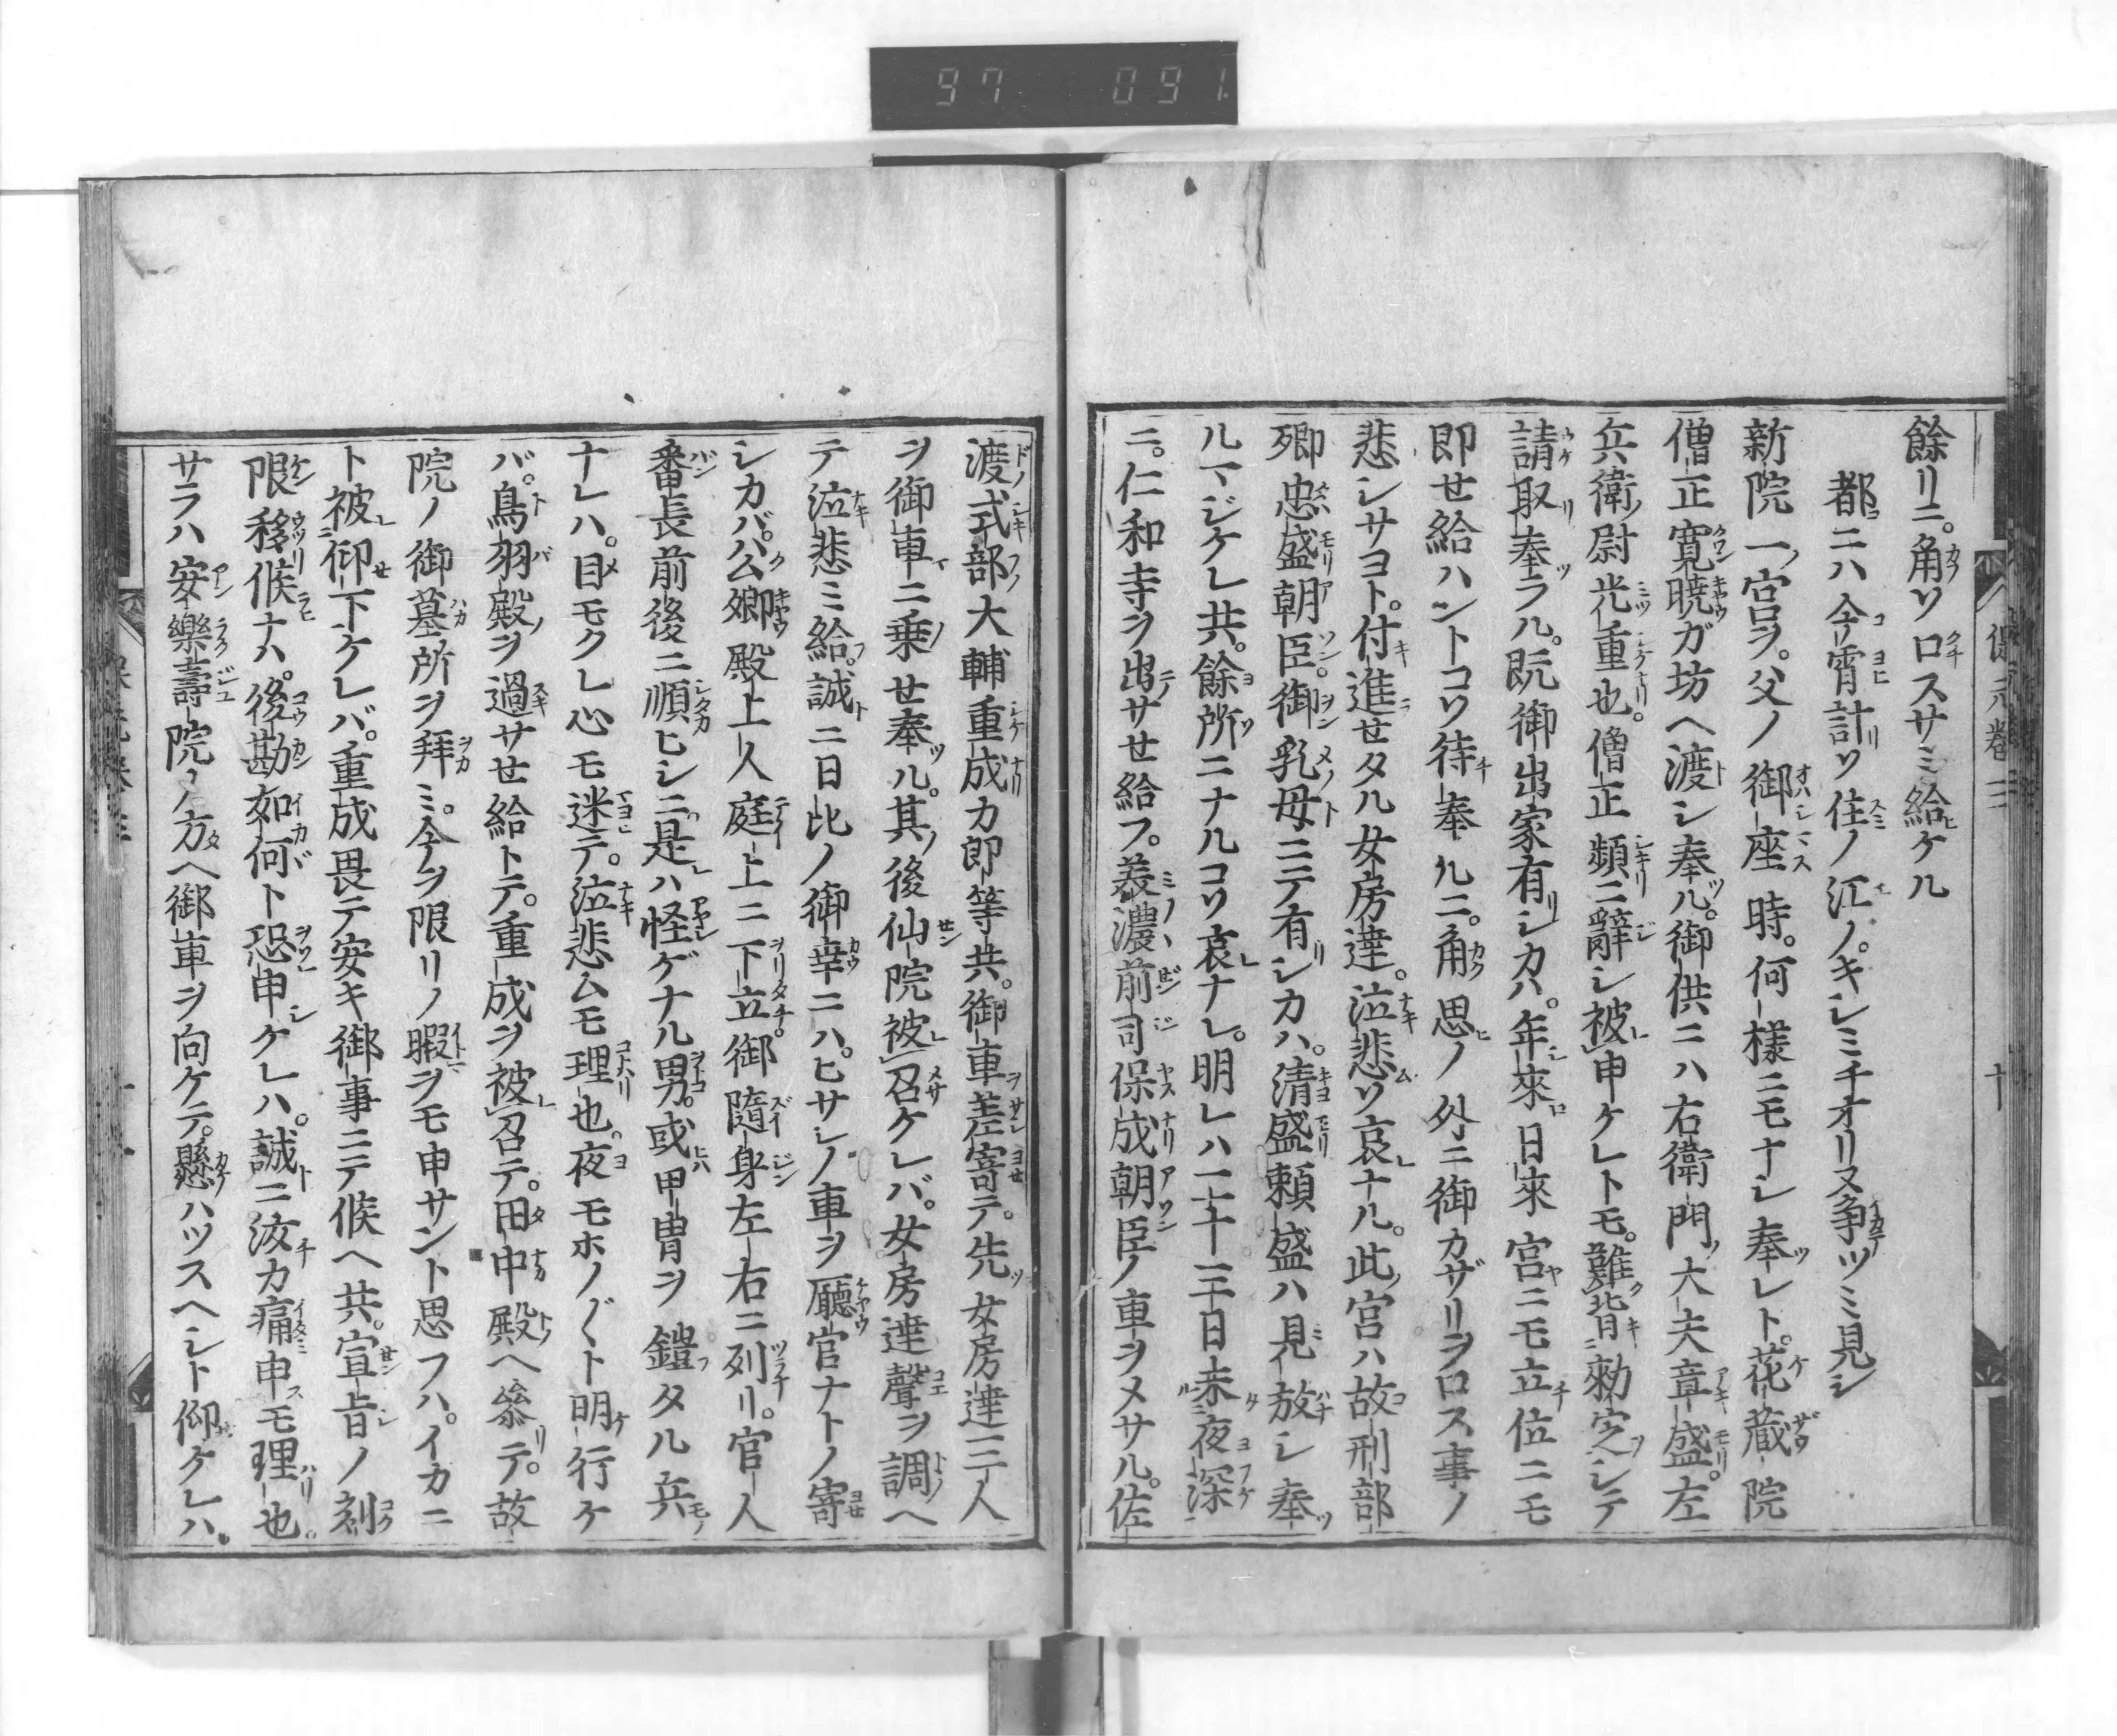 97 091
餘リニ。角ソロスサミ給ケル
都ニハ今宵計ソ住ノ江ノ。キシミチオリヌ爭ツミ見シ
新院一宮ヲ。父ノ御座時。何樣ニモナシ奉レト。花藏院
僧正寛曉ガ坊ヘ渡シ奉ル。御供ニハ右衛門大夫章盛。左
兵衛尉光重也。僧正頻ニ辭シ被申ケレトモ。難背勅定シテ
請取奉ラル。既御出家有シカハ。年來日來宮ニモ立位ニモ
即せ給ハントコソ待奉ルニ。角思ノ外ニ御カザリヲロス事ノ
悲シサヨト。付進せタル女房達。泣悲ソ哀ナル。此宮ハ故刑部
卿忠盛朝臣。御乳母ニテ有シカハ。清盛頼盛ハ見放シ奉
ルマジケレ共。餘所ニナルコソ哀ナレ。明レハ二十三日未夜深
ニ。仁和寺ヲ出サせ給フ。美濃前司保成朝臣ノ車ヲメサル。佐
渡式部大輔重成カ郎等共。御車差寄テ。先女房達三人
ヲ御車ニ乗せ奉ル。其後仙院被召ケレバ。女房達聲ヲ調ヘ
テ泣悲ミ給。誠ニ日比ノ御幸ニハ。ヒサシノ車ヲ廳官ナトノ寄
シカバ。公卿殿上人庭上ニ下立。御隨身左右ニ列リ。官人
番長前後ニ順ヒシニ。是ハ怪ゲナル男。或甲冑ヲ鎧タル兵
ナレハ。目モクレ心モ迷テ。泣悲ムモ理也。夜モホノ〲ト明行ケ
バ。鳥羽殿ヲ過サせ給トテ。重成ヲ被召テ。田中殿ヘ參テ。故
院ノ御墓所ヲ拜ミ。今ヲ限リノ暇ヲモ申サント思フハ。イカニ
ト被仰下ケレバ。重成畏テ安キ御事ニテ候ヘ共。宣旨ノ刻
限移候ナハ。後勘如何ト恐申ケレハ。誠ニ汝カ痛申モ理也。
サラハ安樂壽院ノ方ヘ御車ヲ向ケテ。懸ハツスヘシト仰ケレハ。